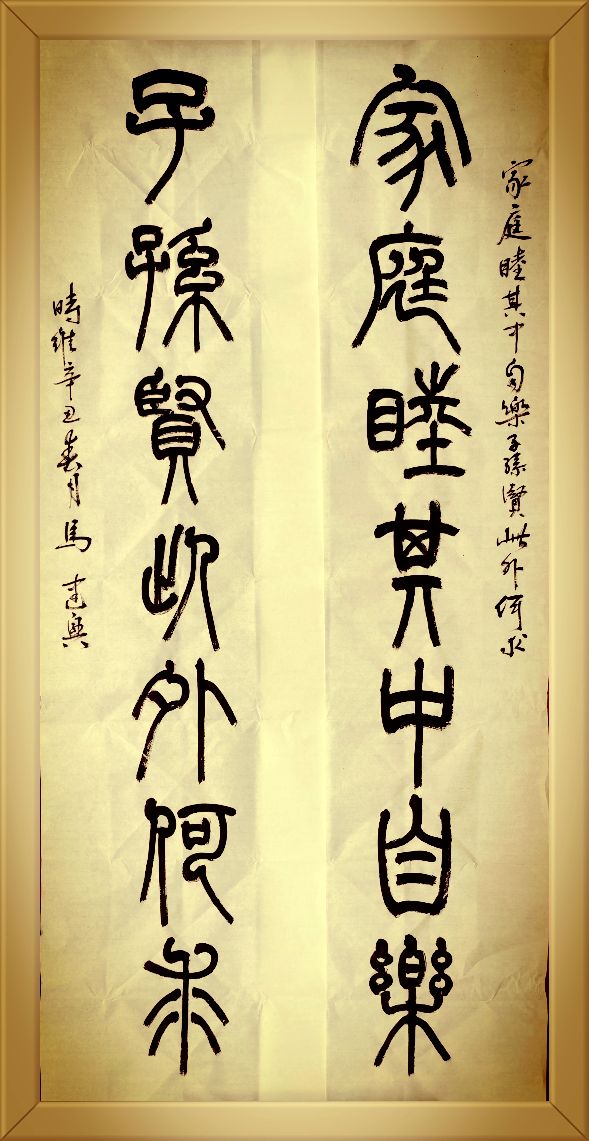 家庭睦其中自樂子孫賢此外何求
家庭睦其中自樂
子孫賢此外何求
時維辛丑春月馬建興